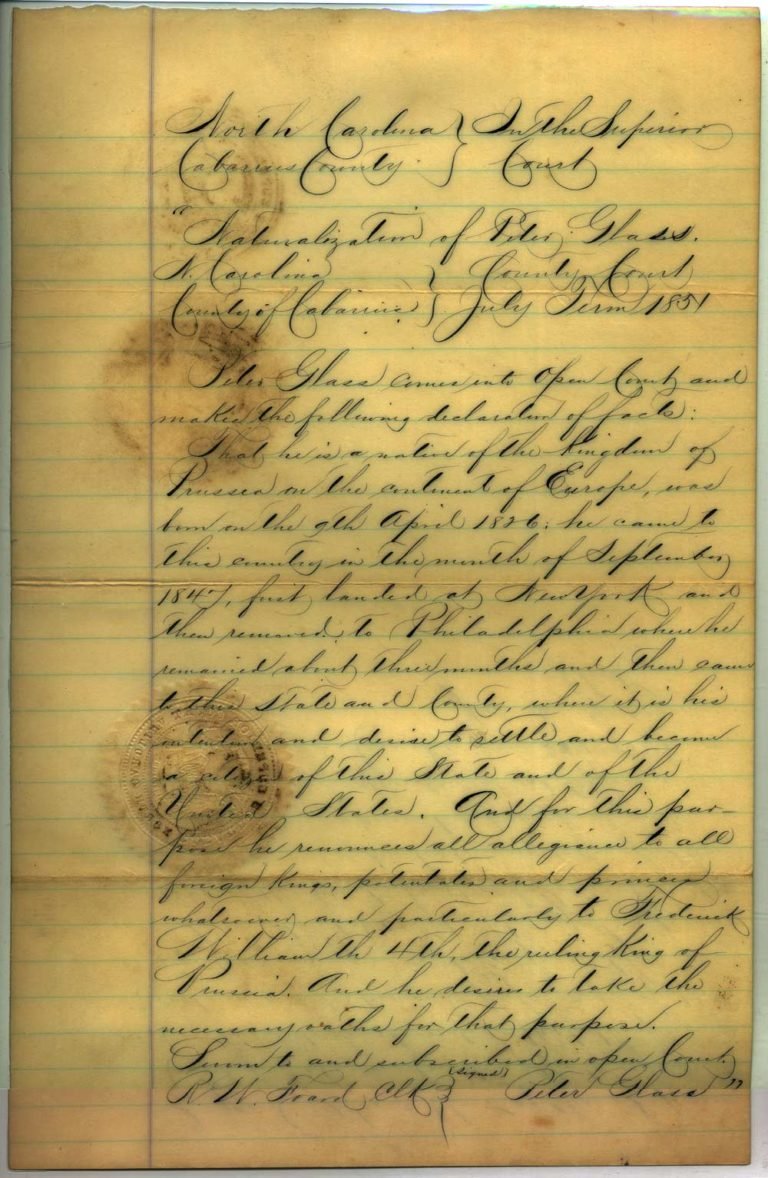 North Carolina } In the Superior
Cabarrus County } Court
"Naturalization of Peter Glass.
N. Carolina } County Court
County of Cabarrus } July Term 1851
Peter Glass comes into Open Court and
makes the following declaration of facts:
That he is a native of the Kingdom of
Prussia on the continent of Europe, was
born on the 9th April 1826; he came to
this country in the month of September
1847, first landed at New York and
then removed to Philadelphia where he
remained about three months and then came
to this State and County, where it is his
intention and desire to settle and become
a citizen of this State and of the
United States. And for this pur-
pose he renounces all allegiance to all
foreign Kings, potentates and princes
whatsoever and particularly to Frederick
William th 4th, the ruling King of
Prussia. And he desires to take the
necessary oaths for that purpose.
Sworn to and subscribed in open Court
R. W. Foard Clk } (signed) Peter Glass"